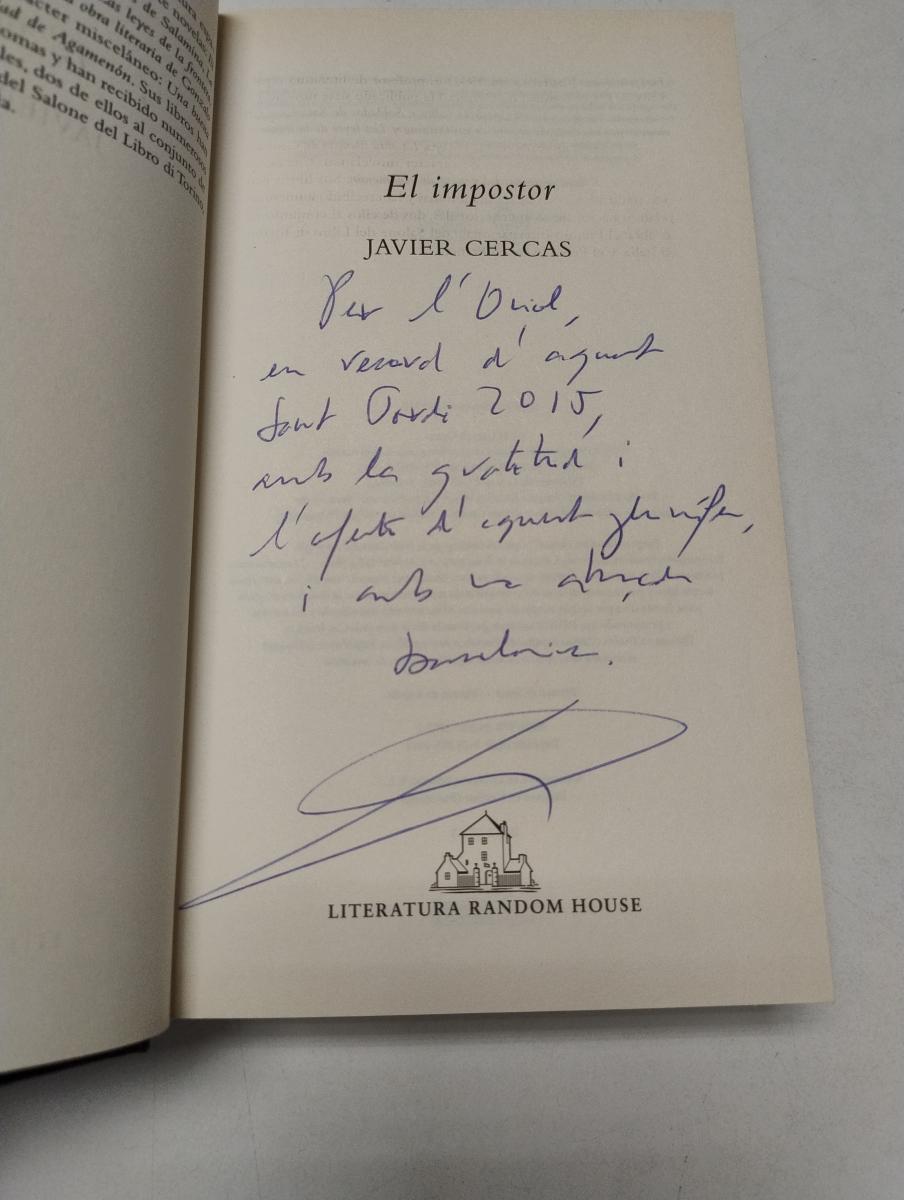 de Salamina, La
Las leyes de la frontera
obra literaria de Gonzalo
cter misceláneo: Una buena
ad de Agamenón. Sus libros han
omas y han recibido numerosos
les, dos de ellos al conjunto de
del Salone del Libro di Torino,
a.
El impostor
JAVIER CERCAS
Per l'Oriol,
en record d'aquest
Sant Jordi 2015,
amb la gratitud i
l'afecte d'aquest
i amb una abraçada
barcelonina.
LITERATURA RANDOM HOUSE